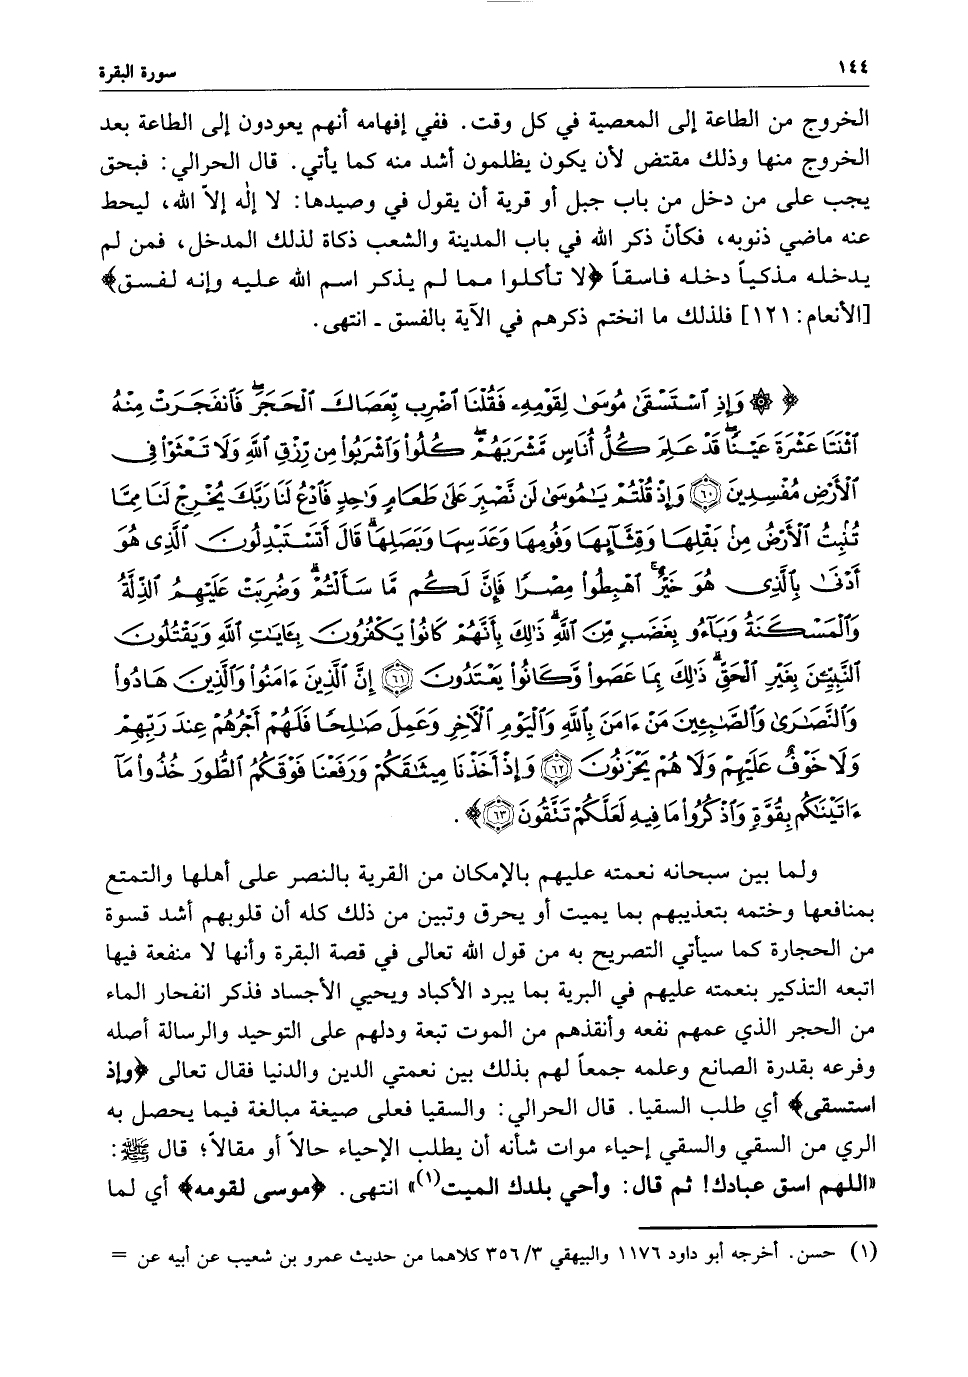 ١٤٤ سورة البقرة
الخروج من الطاعة إلى المعصية في كل وقت. ففي إفهامه أنهم يعودون إلى الطاعة بعد
الخروج منها وذلك مقتض لأن يكون يظلمون أشد منه كما يأتي. قال الحرالي: فبحق
يجب على من دخل من باب جبل أو قرية أن يقول في وصيدها: لا إلٰه إلاّ الله، ليحط
عنه ماضي ذنوبه، فكأنّ ذكر الله في باب المدينة والشعب ذكاة لذلك المدخل، فمن لم
يدخله مذكياً دخله فاسقاً ﴿لا تأكلوا مما لم يذكر اسم الله عليه وإنه لفسق﴾
[الأنعام: ١٢١] فلذلك ما انختم ذكرهم في الآية بالفسق ـ انتهى.
﴿ ۞ وَإِذِ ٱسْتَسْقَىٰ مُوسَىٰ لِقَوْمِهِۦ فَقُلْنَا ٱضْرِب بِّعَصَاكَ ٱلْحَجَرَۖ فَٱنفَجَرَتْ مِنْهُ
ٱثْنَتَا عَشْرَةَ عَيْنًاۖ قَدْ عَلِمَ كُلُّ أُنَاسٍ مَّشْرَبَهُمْۖ كُلُوا۟ وَٱشْرَبُوا۟ مِن رِّزْقِ ٱللَّهِ وَلَا تَعْثَوْا۟ فِى
ٱلْأَرْضِ مُفْسِدِينَ ﴿٦٠﴾ وَإِذْ قُلْتُمْ يَٰمُوسَىٰ لَن نَّصْبِرَ عَلَىٰ طَعَامٍ وَٰحِدٍ فَٱدْعُ لَنَا رَبَّكَ يُخْرِجْ لَنَا مِمَّا
تُنۢبِتُ ٱلْأَرْضُ مِنۢ بَقْلِهَا وَقِثَّآئِهَا وَفُومِهَا وَعَدَسِهَا وَبَصَلِهَاۖ قَالَ أَتَسْتَبْدِلُونَ ٱلَّذِى هُوَ
أَدْنَىٰ بِٱلَّذِى هُوَ خَيْرٌۚ ٱهْبِطُوا۟ مِصْرًا فَإِنَّ لَكُم مَّا سَأَلْتُمْۗ وَضُرِبَتْ عَلَيْهِمُ ٱلذِّلَّةُ
وَٱلْمَسْكَنَةُ وَبَآءُو بِغَضَبٍ مِّنَ ٱللَّهِۗ ذَٰلِكَ بِأَنَّهُمْ كَانُوا۟ يَكْفُرُونَ بِـَٔايَٰتِ ٱللَّهِ وَيَقْتُلُونَ
ٱلنَّبِيِّـۧنَ بِغَيْرِ ٱلْحَقِّۗ ذَٰلِكَ بِمَا عَصَوا۟ وَّكَانُوا۟ يَعْتَدُونَ ﴿٦١﴾ إِنَّ ٱلَّذِينَ ءَامَنُوا۟ وَٱلَّذِينَ هَادُوا۟
وَٱلنَّصَٰرَىٰ وَٱلصَّٰبِـِٔينَ مَنْ ءَامَنَ بِٱللَّهِ وَٱلْيَوْمِ ٱلْـَٔاخِرِ وَعَمِلَ صَٰلِحًا فَلَهُمْ أَجْرُهُمْ عِندَ رَبِّهِمْ
وَلَا خَوْفٌ عَلَيْهِمْ وَلَا هُمْ يَحْزَنُونَ ﴿٦٢﴾ وَإِذْ أَخَذْنَا مِيثَٰقَكُمْ وَرَفَعْنَا فَوْقَكُمُ ٱلطُّورَ خُذُوا۟ مَآ
ءَاتَيْنَٰكُم بِقُوَّةٍ وَٱذْكُرُوا۟ مَا فِيهِ لَعَلَّكُمْ تَتَّقُونَ ﴿٦٣﴾﴾.
ولما بين سبحانه نعمته عليهم بالإمكان من القرية بالنصر على أهلها والتمتع
بمنافعها وختمه بتعذيبهم بما يميت أو يحرق وتبين من ذلك كله أن قلوبهم أشد قسوة
من الحجارة كما سيأتي التصريح به من قول الله تعالى في قصة البقرة وأنها لا منفعة فيها
اتبعه التذكير بنعمته عليهم في البرية بما يبرد الأكباد ويحيي الأجساد فذكر انفجار الماء
من الحجر الذي عمهم نفعه وأنقذهم من الموت تبعة ودلهم على التوحيد والرسالة أصله
وفرعه بقدرة الصانع وعلمه جمعاً لهم بذلك بين نعمتي الدين والدنيا فقال تعالى ﴿وإذ
استسقى﴾ أي طلب السقيا. قال الحرالي: والسقيا فعلى صيغة مبالغة فيما يحصل به
الري من السقي والسقي إحياء موات شأنه أن يطلب الإحياء حالاً أو مقالاً؛ قال ﷺ:
«اللهم اسق عبادك! ثم قال: وأحي بلدك الميت(١)» انتهى. ﴿موسى لقومه﴾ أي لما
(١) حسن. أخرجه أبو داود ١١٧٦ والبيهقي ٣/ ٣٥٦ كلاهما من حديث عمرو بن شعيب عن أبيه عن =